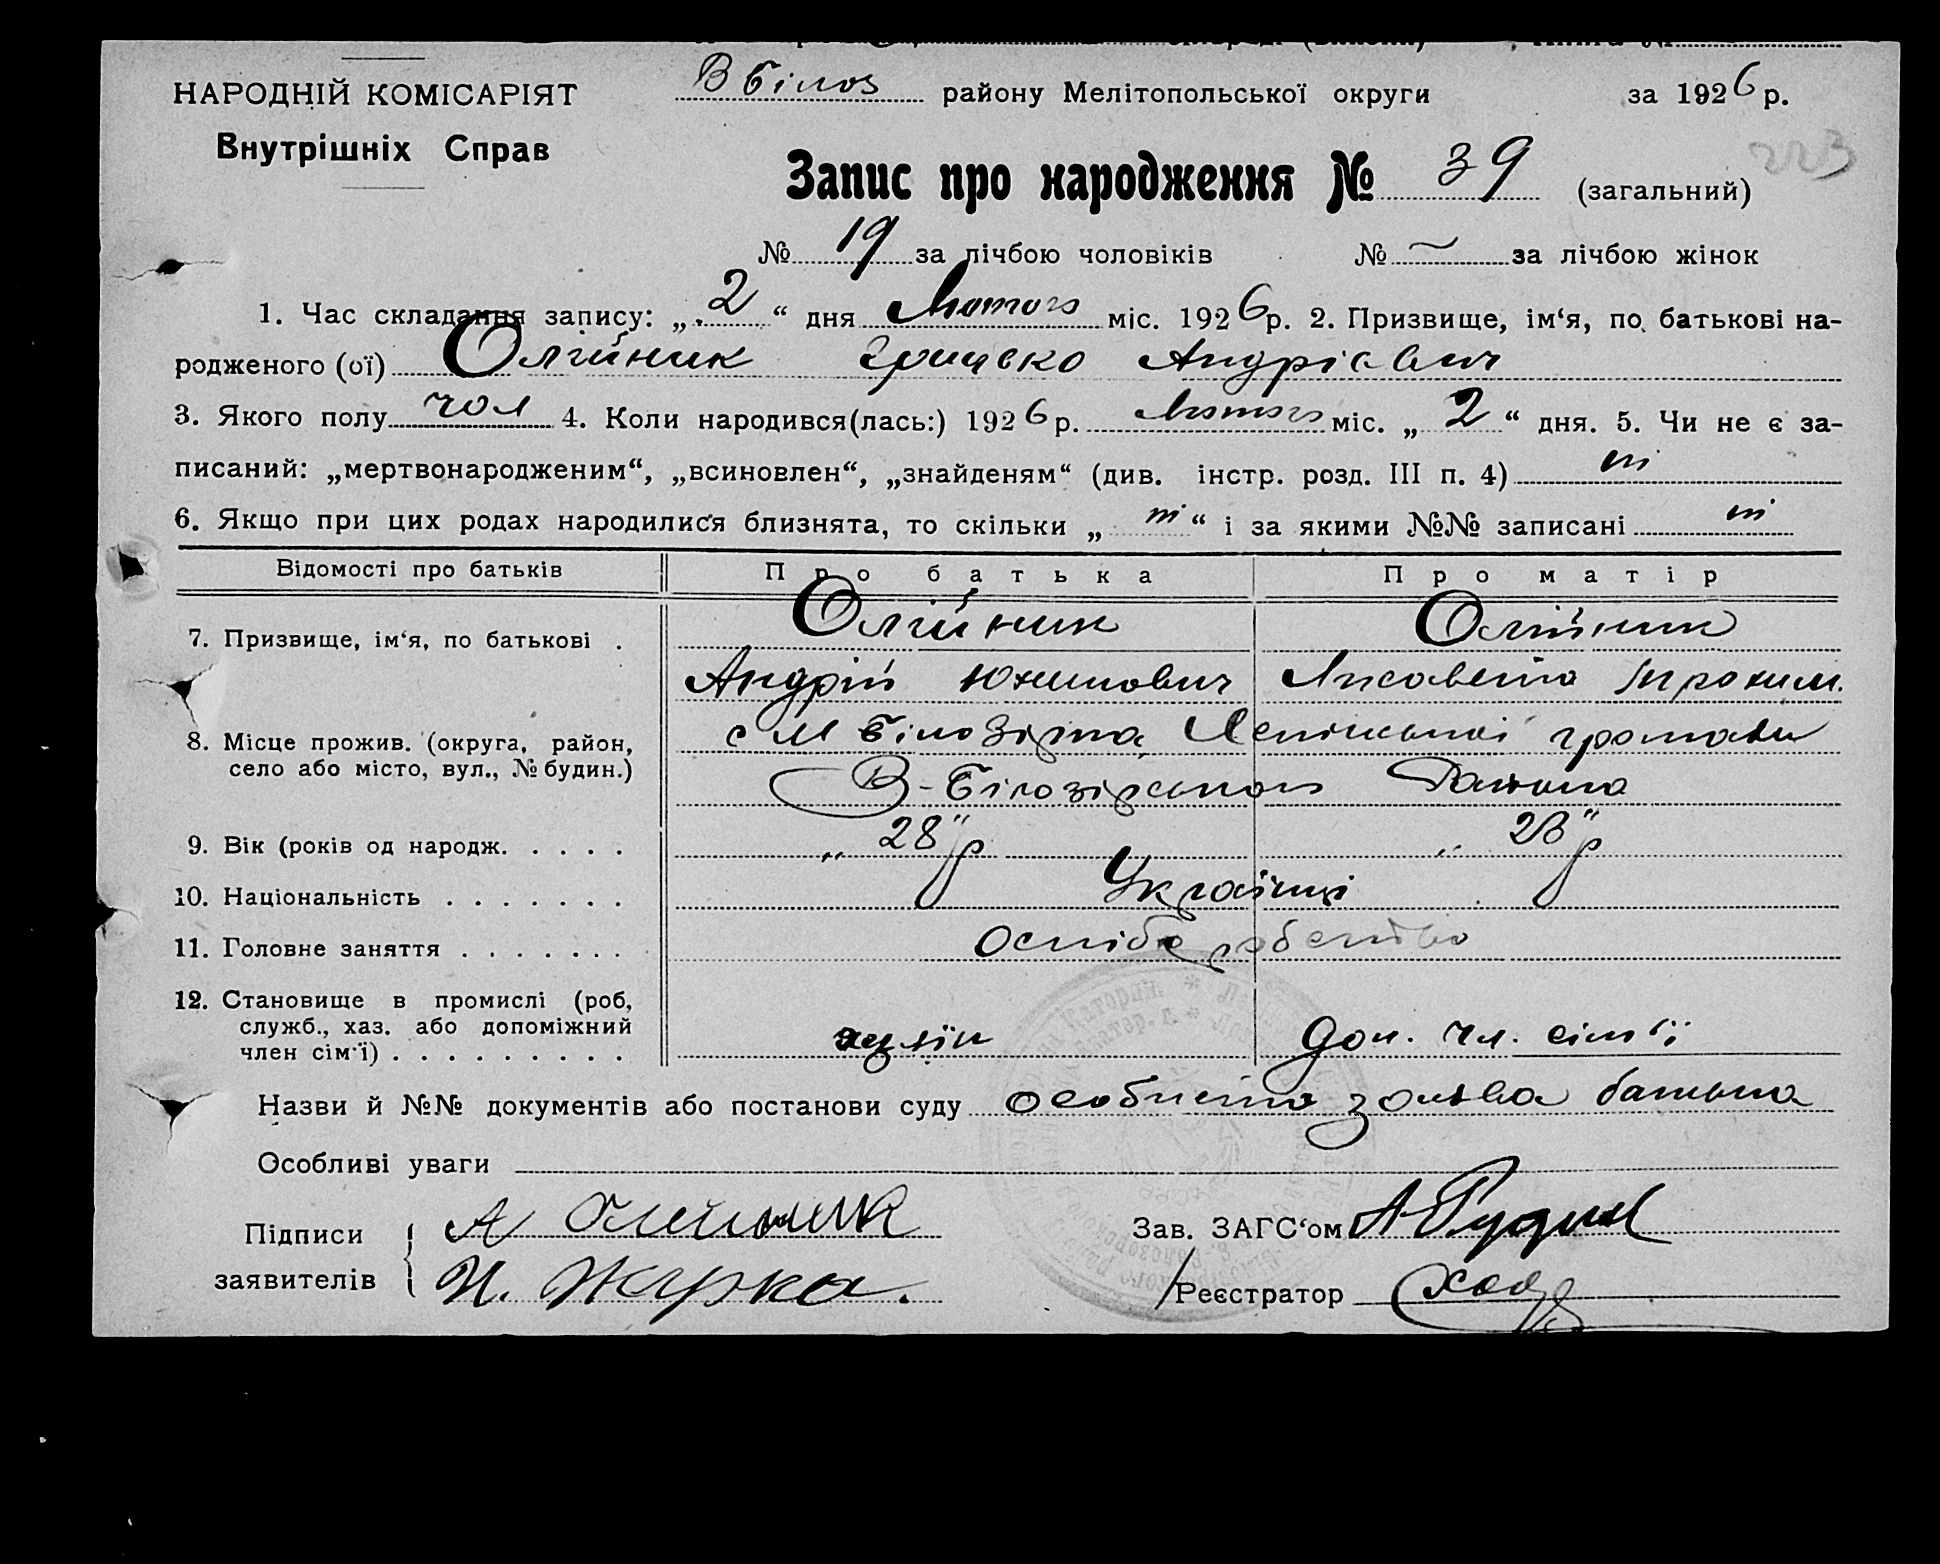 НАРОДНІЙ КОМІСАРІЯТ
Внутрішніх Справ
В Білоз району Мелітопольської округи за 1926 р.
223
Запис про народження № 39 (загальний)
№ 19 за лічбою чоловіків № — за лічбою жінок
1. Час складання запису: „ 2 “ дня Лютого міс. 1926 р. 2. Призвище, ім‘я, по батькові на-
родженого (ої) Олійник Грицько Андрієвич
3. Якого полу чол 4. Коли народився(лась:) 1926 р. Лютого міс. „ 2 “ дня. 5. Чи не є за-
писаний: „мертвонародженим“, „всиновлен“, „знайденям“ (див. інстр. розд. III п. 4) ні
6. Якщо при цих родах народилися близнята, то скільки „ ні “ і за якими №№ записані ні
Відомості про батьків Про батька Про матір
7. Призвище, ім‘я, по батькові . Олійник Олійник
Андрій Юхимович Лисавета Трохим.
8. Місце прожив. (округа, район,
село або місто, вул., № будин.)
с М Білозірка громади
В-Білозірського Району
9. Вік (років од народж. . . . . „ 28 " р „ 28 " р
10. Національність . . . . . . . Українці
11. Головне заняття . . . . . . .
12. Становище в промислі (роб,
служб., хаз. або допоміжний
член сім‘ї) . . . . . . . . . .
Доп. чл. сім'ї
Назви й №№ документів або постанови суду особиста заява батька
Особливі уваги
Підписи
заявителів
А Олейник
И. Журка.
Зав. ЗАГС‘ом
Реєстратор